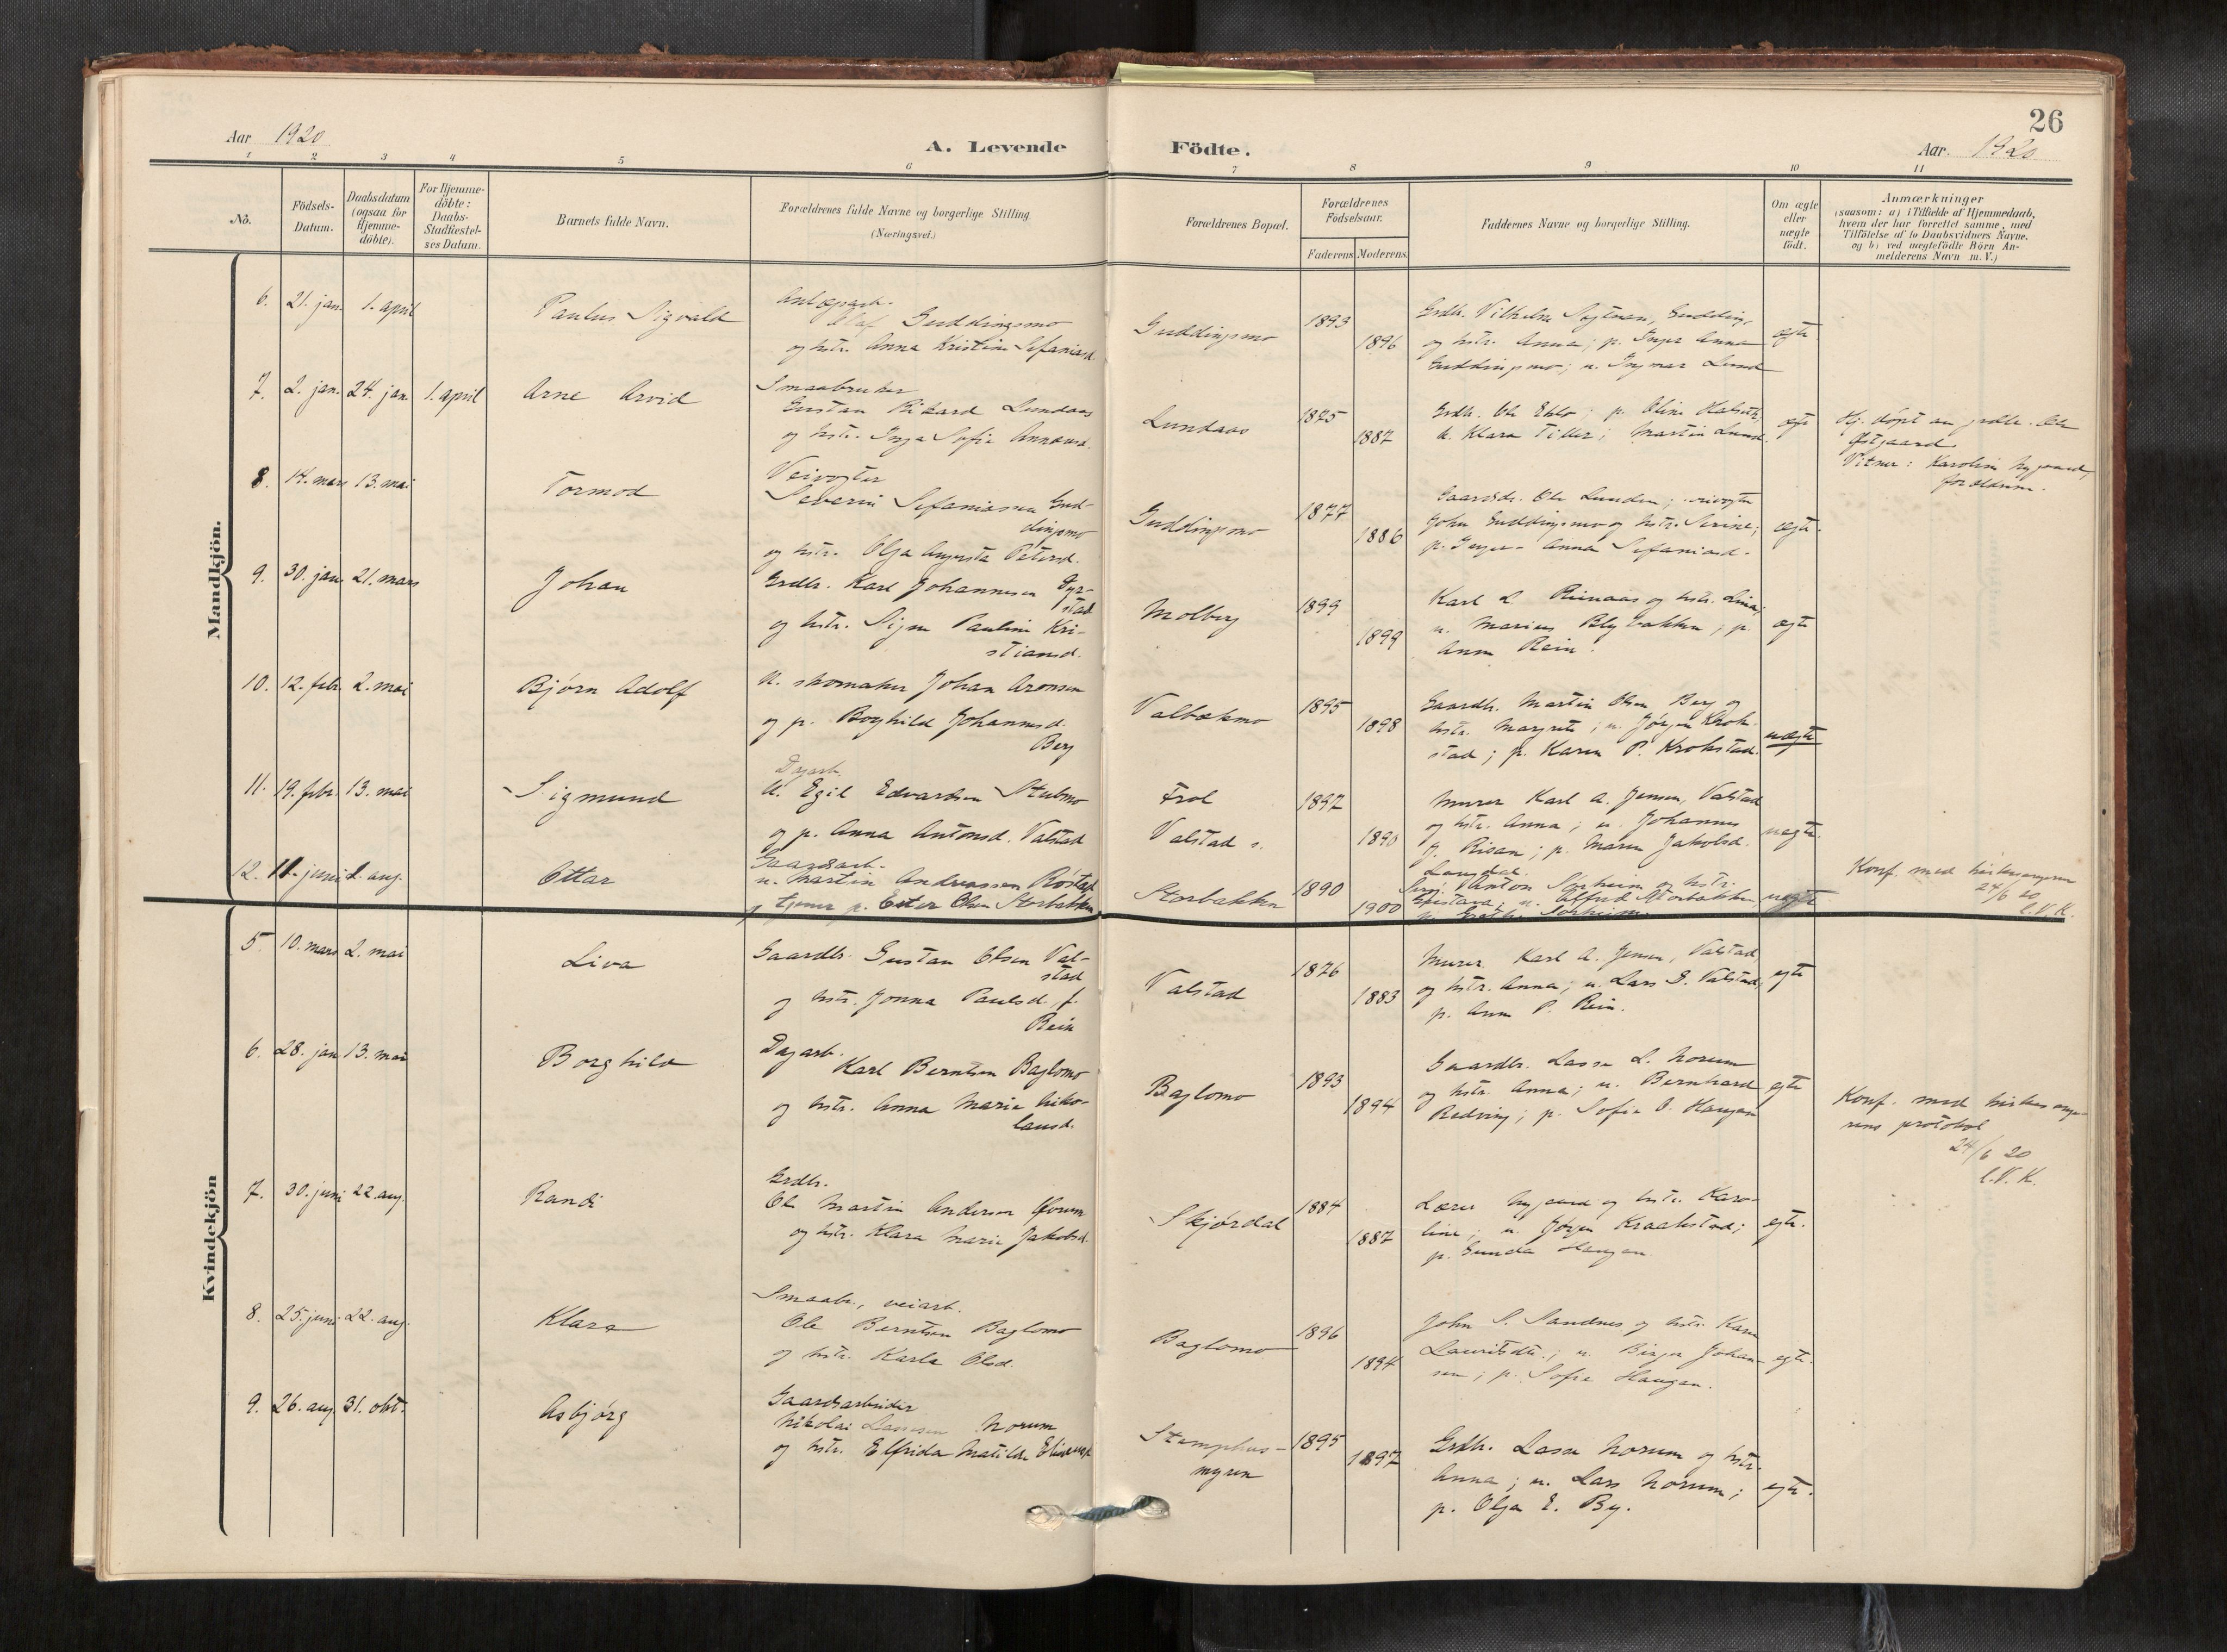 26
Aar 1920
A. Levende Födte.
Aar. 1920
1 2 3 4 5 6 7 8 9 10 11
Nô. Födsels-Datum. Daabsdatum (ogsaa for Hjemme-döbte). For Hjemme-döbte: Daabs-Stadfæstel-ses Datum. Barnets fulde Navn. Forældrenes fulde Navne og borgerlige Stilling. (Næringsvei.) Forældrenes Bopæl. Forældrenes Födselsaar. Faderens Moderens. Faddernes Navne og borgerlige Stilling. Om ægte eller uægte födt. Anmærkninger
(saasom: a) i Tilfælde af Hjemmedaab,
hvem der har forrettet samme, med
Tilföielse af to Daabsvidners Navne,
og b) ved uægtefödte Börn An-
melderens Navn m. V.)
Mandkjön.
6. 21. jan. 1. april Paulus Sigvald
Olaf Guddingsmo
og hstr. Anna Kristine Sefaniasd.
Guddingsmo 1893 1896
og hstr. Anna; p. Inga Anna
Guddingsmo; u. Ingmar Lund
ægte
7. 2. jan. 24. jan. 1. april Arne Arvid
Smaabruker
Gustav Rikard Lundaas
og hstr. Inga Sofie
Lundaas 1875 1887
k. Klara Tiller; Martin Lund.
Hj. døpt av grdbr. Ole
Østgaard.
Vitner: Karoline Nygaard,
forældrene.
8. 14. mars 13. mai Tormod
Veivogter
Severin Sefaniassen Gud-
dingsmo
og hstr. Olga Augusta Petersd.
Guddingsmo 1877 1886
Gaardbr. Ole Lunden; veivogter
John Guddingsmo og hstr. Serine;
p. Inger-Anna Sefaniasd.
ægte
9. 30. jan. 21. mars Johan
Grdbr. Karl Johannesen Gyr-
stad
og hstr. Signe Pauline Kri-
stiansd.
Molberg 1899 1899
Karl L. Reinaas og hstr. Lina;
u. Marius Blybakken; p.
Anna Rein.
ægte
10. 12. febr. 2. mai Bjørn Adolf
U. skomaker Johan Aronsen
og p. Borghild Johannesd.
Berg
Valbækmo 1895 1898
Gaardbr. Martin Olsen Berg og
hstr. Margrete; u. Jørgen Krok-
stad; p. Karen P. Krokstad.
uægte
11. 19. febr. 13. mai Sigmund
Dagarb.
U. Egil Edvardsen Stubmo
og p. Anna Antonsd. Valstad
Frol
Valstad s. 1897 1890
Murer Karl A. Jensen, Valstad
og hstr. Anna; u. Johannes
J. Risan; p. Maren Jakobsd.
uægte.
12. 11. juni 1. aug. Ottar
Gaardsarb.
u. Martin Andreassen Røstad
og tjener p. Ester Olsen Storbakken
Storbakken 1890 1900
Anton Sørheim og hstr.
Gustava; u. Alfred Storbakken
uægte
Konf. med kirkesangeren
24/6 20
O.V.K.
Kvindekjön
5. 10. mars 2. mai Liva
Gaardbr. Gustav Olsen Val-
stad
og hstr. Jonna Paulsd. f.
Rein
Valstad 1876 1883
Murer Karl A. Jensen, Valstad
og hstr. Anna; u. Lars G. Valstad;
p. Anna P. Rein.
egte
6. 28. jan. 13. mai Borghild
Dagarb.
Karl Berntsen Baglomo
og hstr. Anna Marie Niko-
laisd.
Baglomo 1893 1894
Gaardbr. Lasse L. Norum
og hstr. Anna; u. Bernhard
Redving; p. Sofie O. Haugan
egte
Konf. med kirkesange-
rens protokol
24/6 20
O.V.K.
7. 30. juni 22. aug. Randi
Grdbr.
Ole Martin Andersen
og hstr. Klara Marie Jakobsd.
Skjørdal 1884 1887
Lærer Nygaard og hstr. Karo-
line; u. Jørgen Kraakstad;
p. Gunda Haugan
egte.
8. 25. juni 22. aug. Klara
Smaabr., veiarb.
Ole Berntsen Baglomo
og hstr. Karla Olsd.
Baglomo 1896 1894
John S. Sandnes og hstr. Karen
Lauritsdtr.; u. Birger Johan-
sen; p. Sofie Haugan.
egte.
9. 26. aug. 31. okt. Asbjørg
Gaardsarbeider
Nikolai Lassesen Norum
og hstr. Elfrida Matilde
Stamphus-
myren 1895 1897
Grdbr. Lasse Norum og hstr.
Anna; u. Lars Norum;
p. Olga E. By.
egte.